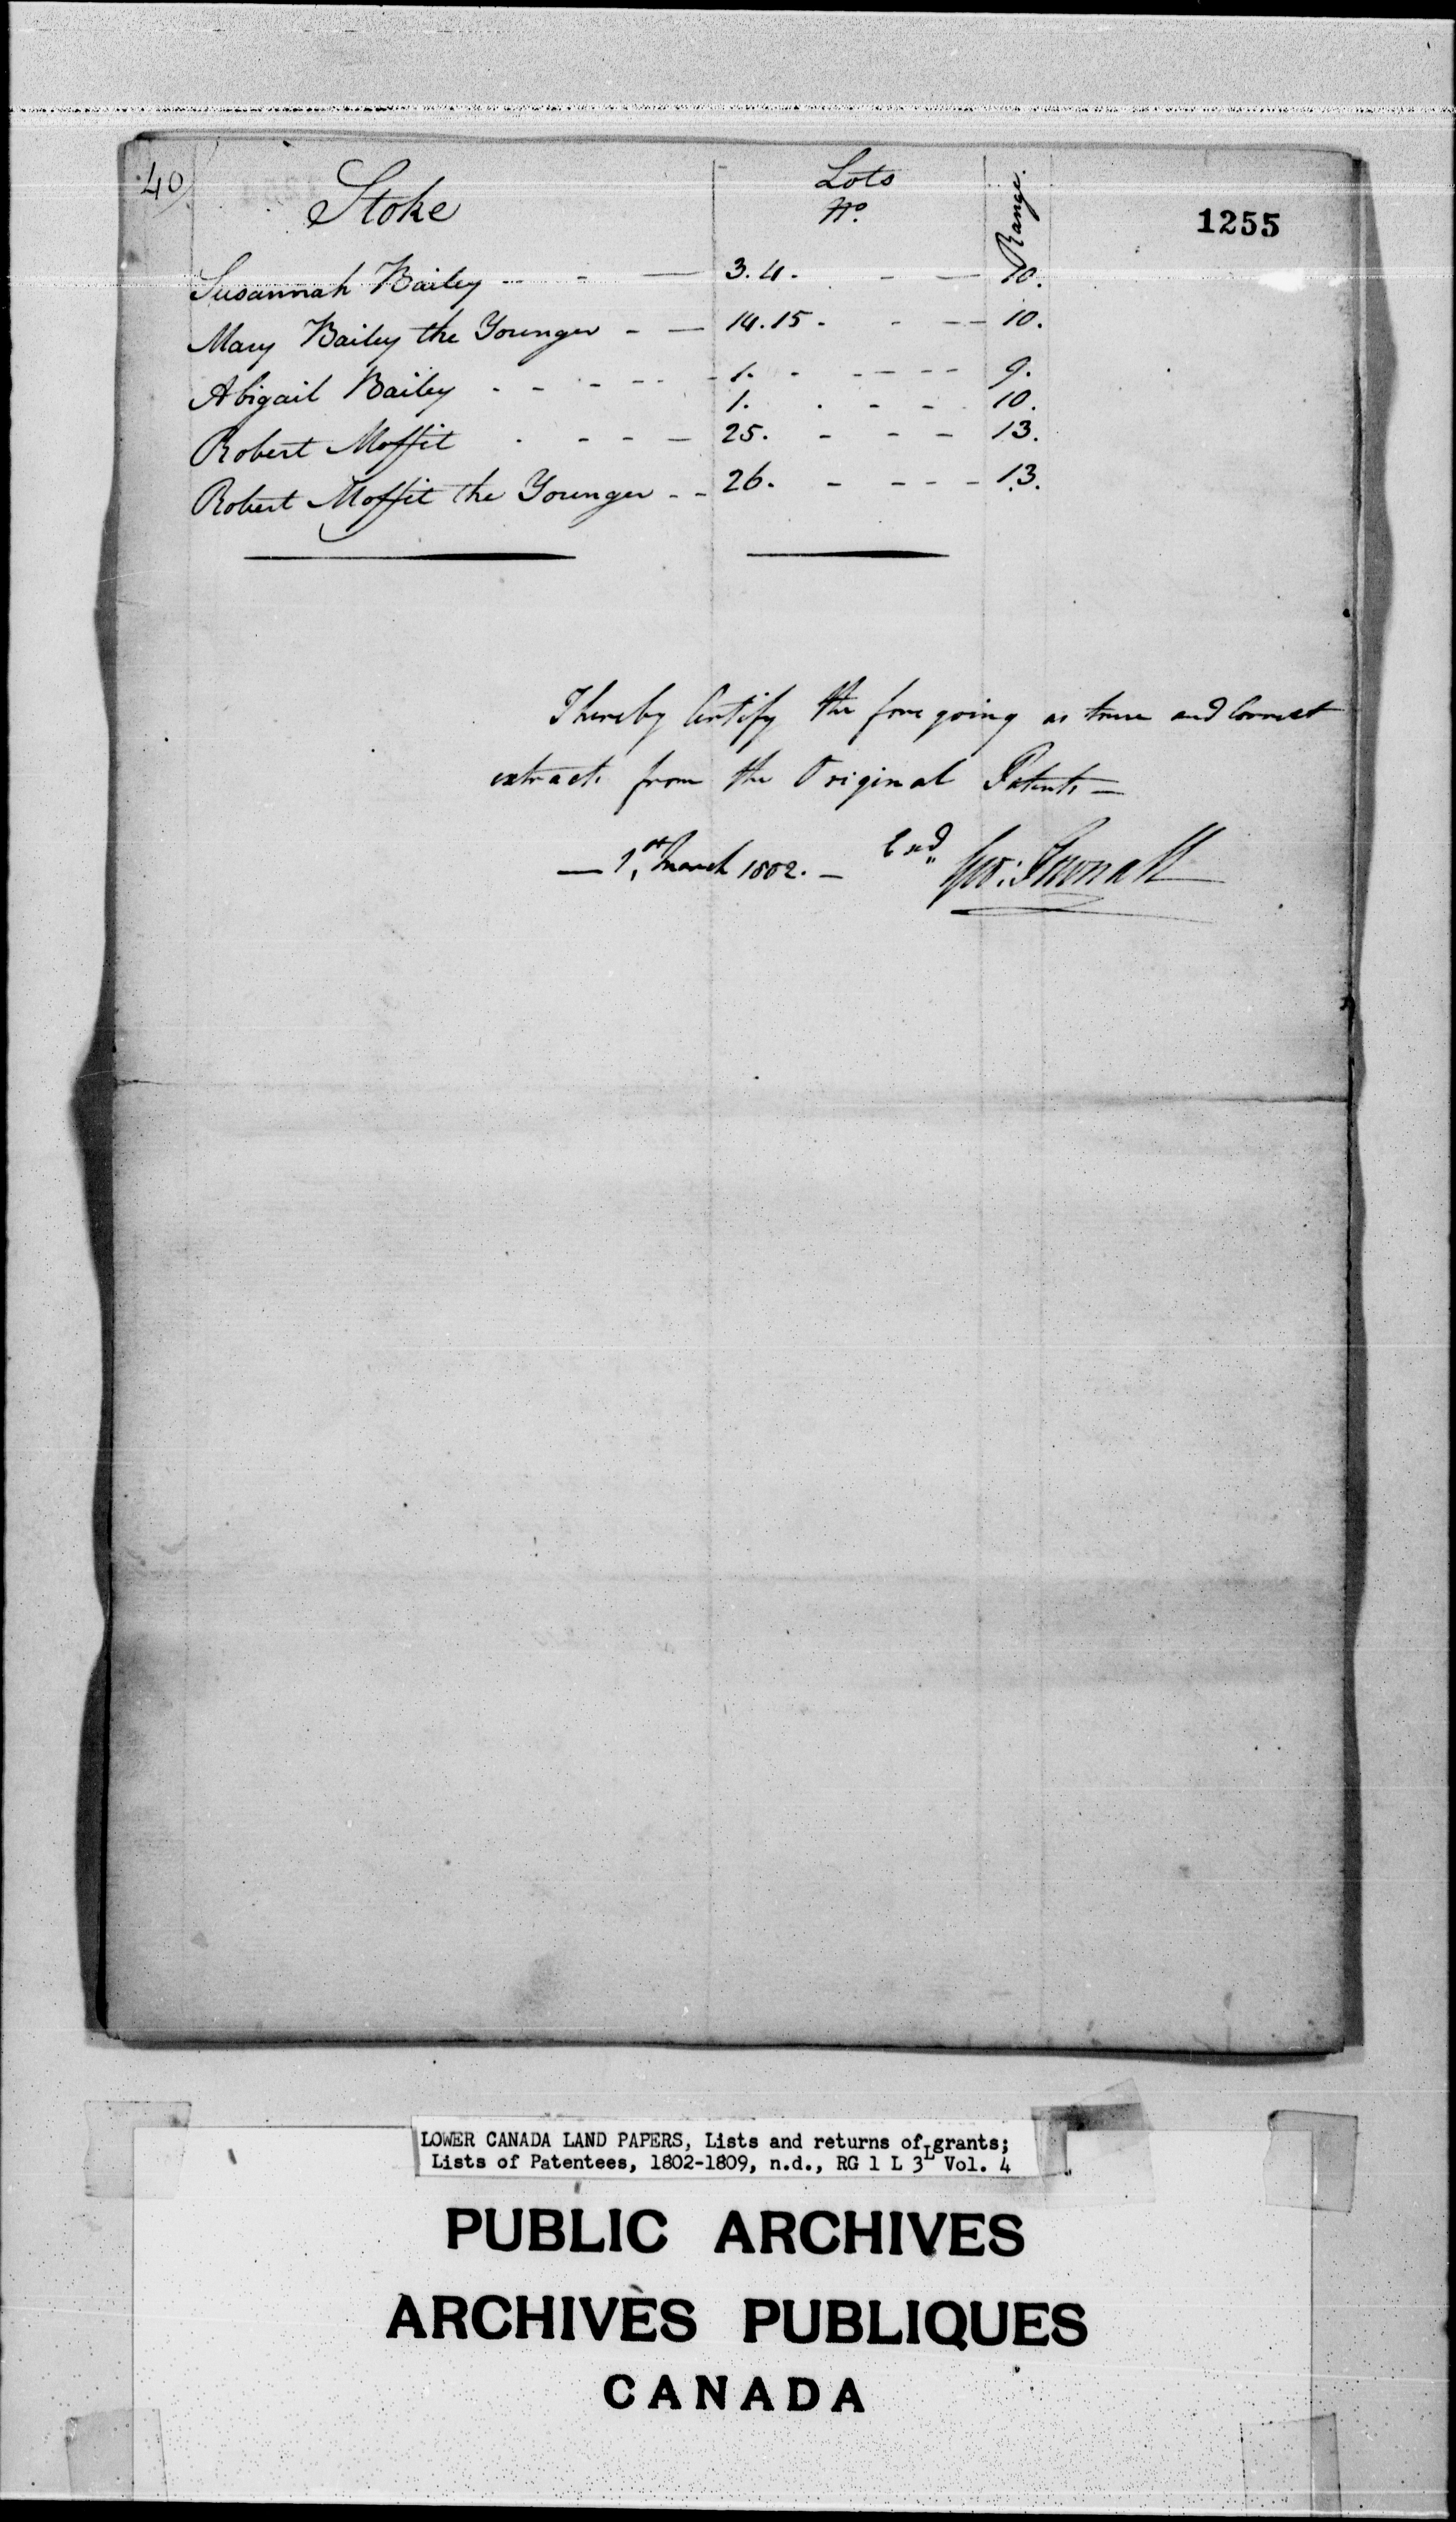 40
Stoke Lots No. Range. 1255
Susannah Bailey - - — 3.4. - — 10.
Mary Bailey the Younger - — 14.15. - - — 10.
Abigail Bailey - - - - - 1. - - - - - 9.
1. . - - 10.
Robert Moffit . - - - — 25. - - — 13.
Robert Moffit the Younger - - 26. - - - - 13.
I hereby Certify the foregoing as true and Correct
extracts from the Original Patents —
— 1st March 1802. — Geo: Pownall
LOWER CANADA LAND PAPERS, Lists and returns of grants;
Lists of Patentees, 1802-1809, n.d., RG 1 L 3L Vol. 4
PUBLIC ARCHIVES
ARCHIVES PUBLIQUES
CANADA